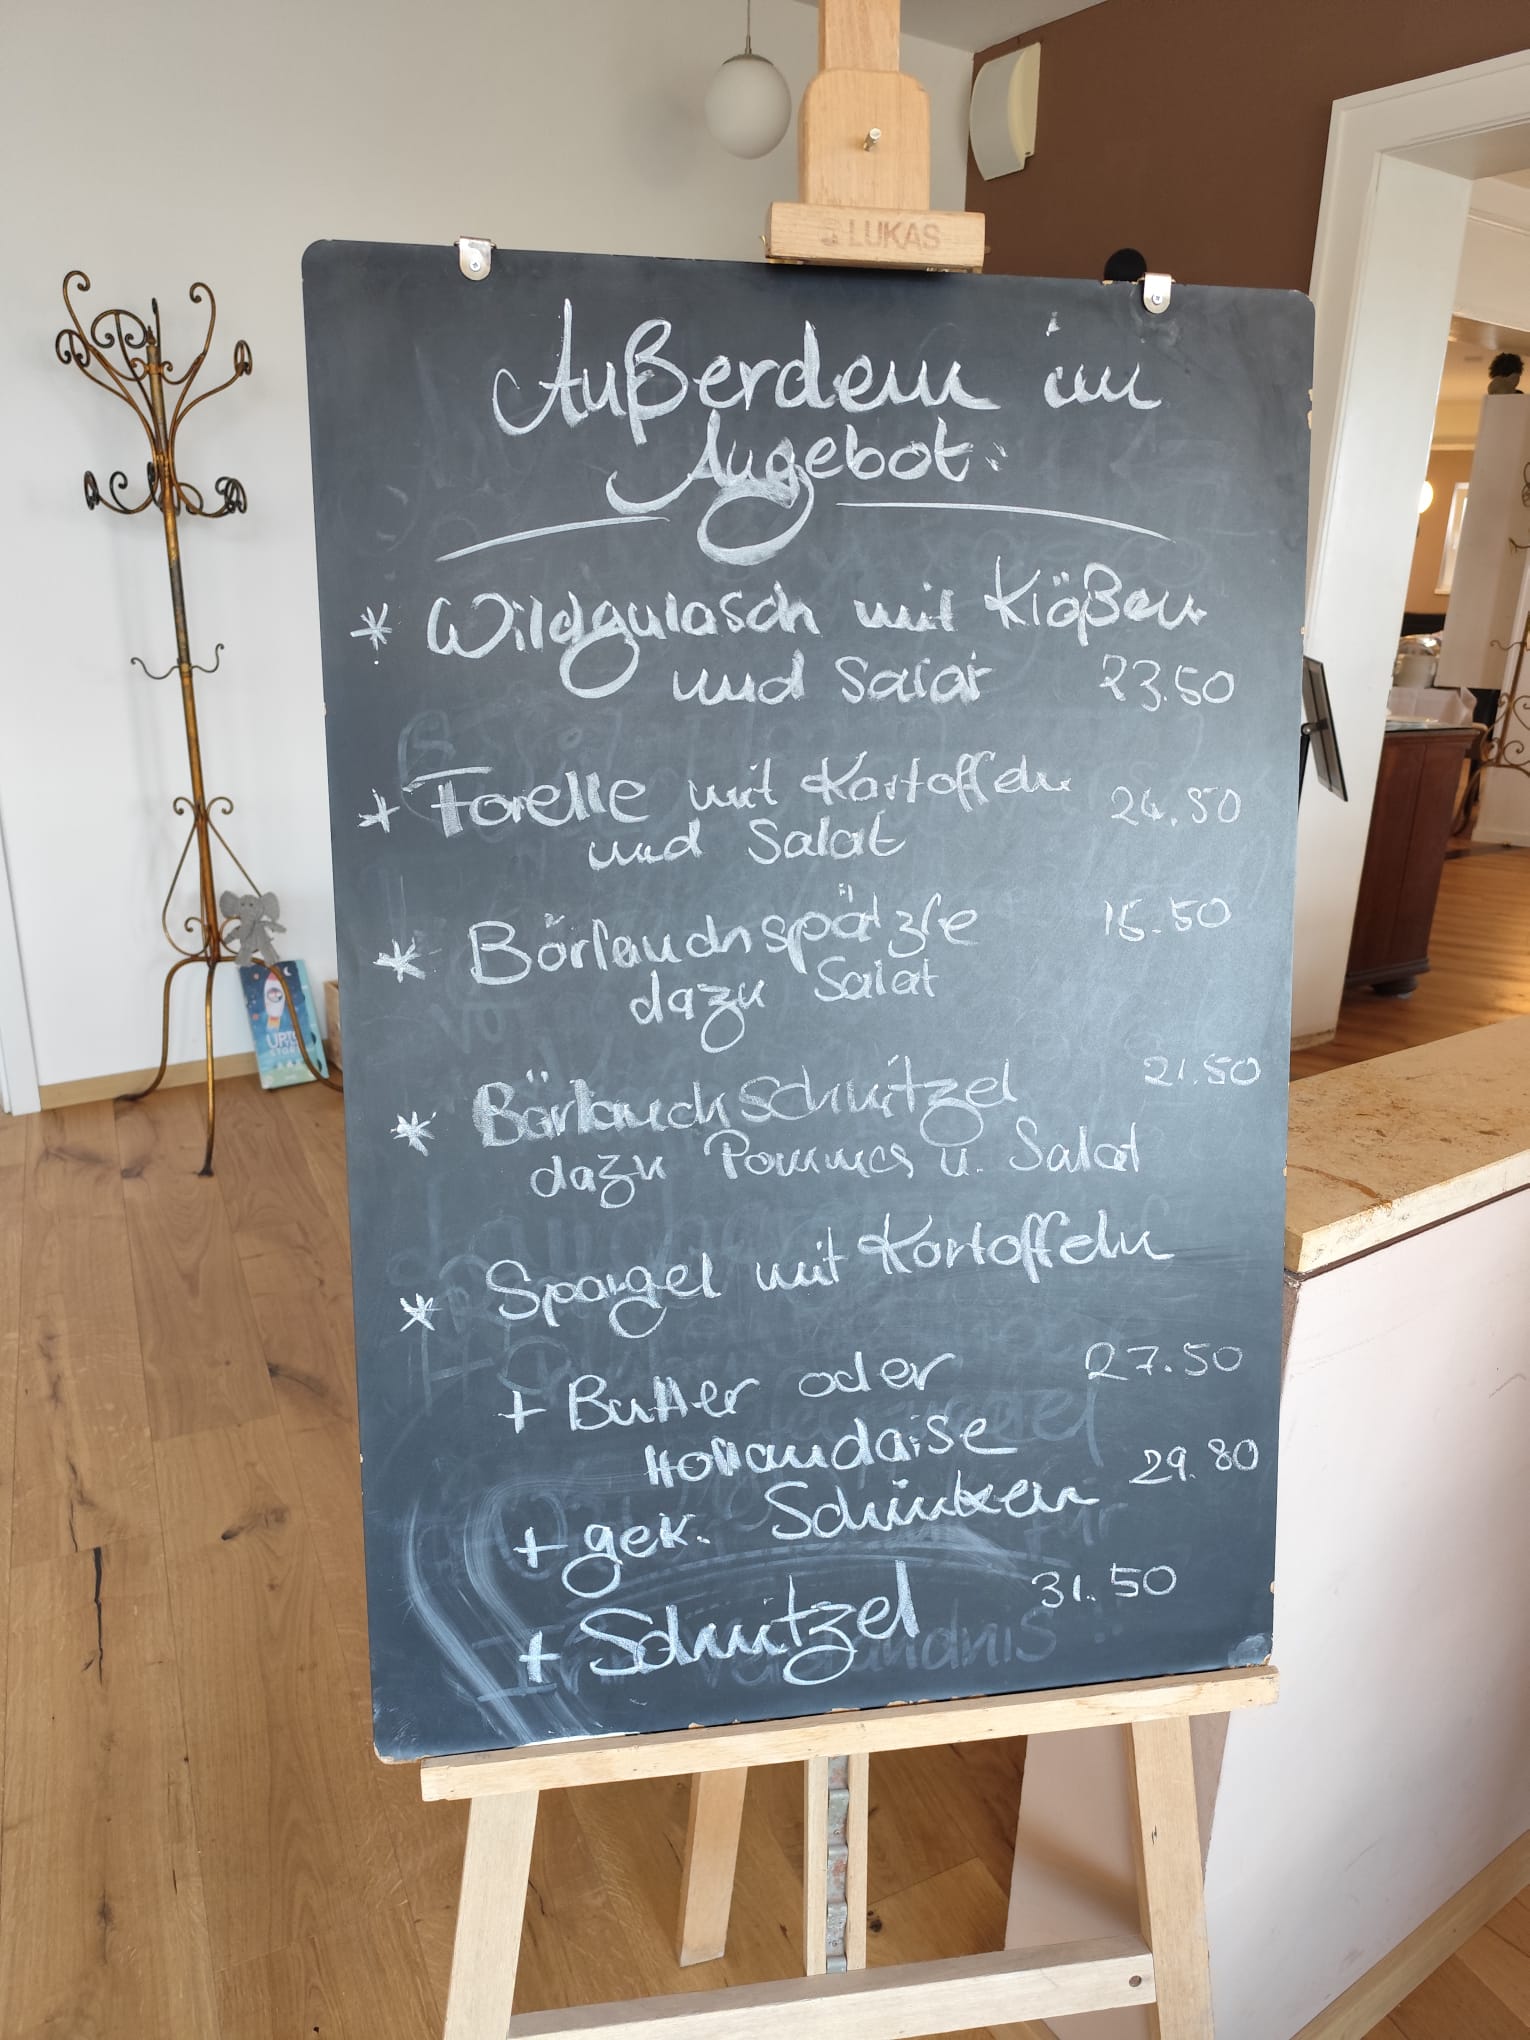 LUKAS
Außerdem im
Angebot:
* Wildgulasch mit Klößen
und Salat 23.50
* Forelle mit Kartoffeln 24.50
und Salat
* Bärlauchspätzle 15.50
dazu Salat
* Bärlauchschnitzel 21.50
dazu Pommes u. Salat
* Spargel mit Kartoffeln
+ Butter oder 27.50
Hollandaise
+ gek. Schinken 29.80
+ Schnitzel 31.50